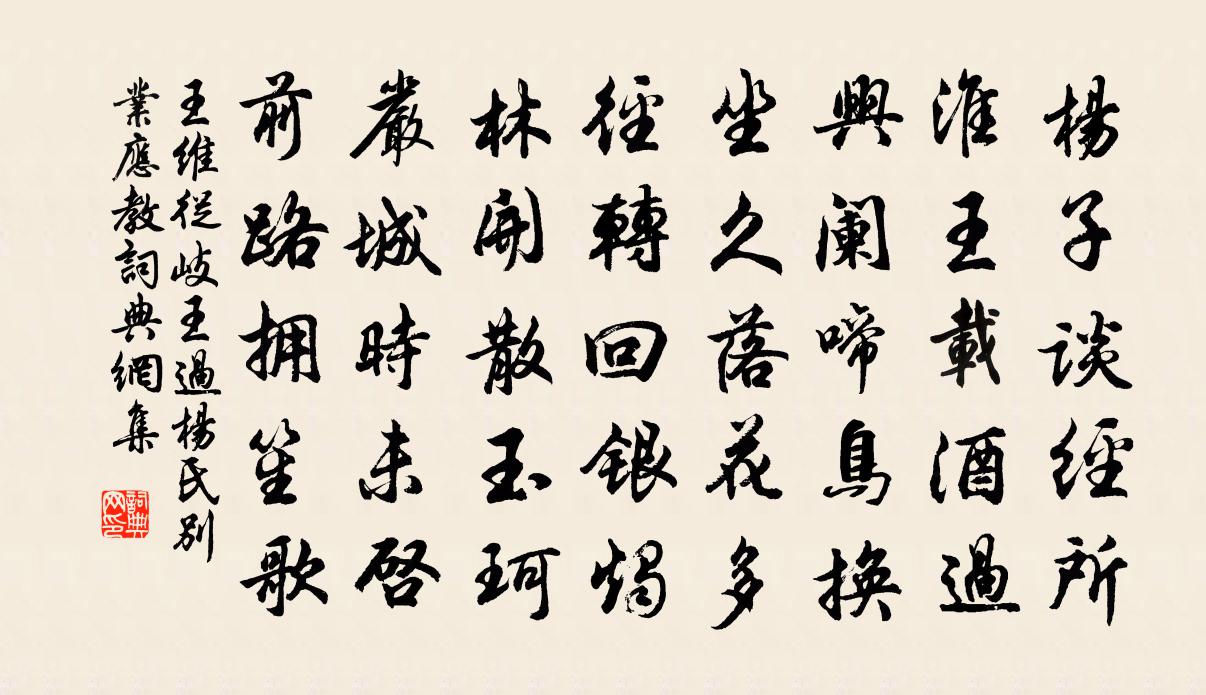 楊子談經所
淮王載酒過
興闌啼鳥換
坐久落花多
徑轉回銀燭
林開散玉珂
嚴城時未啓
前路擁笙歌
王維從岐王過楊氏別
業應教詞典網集
詞典网印